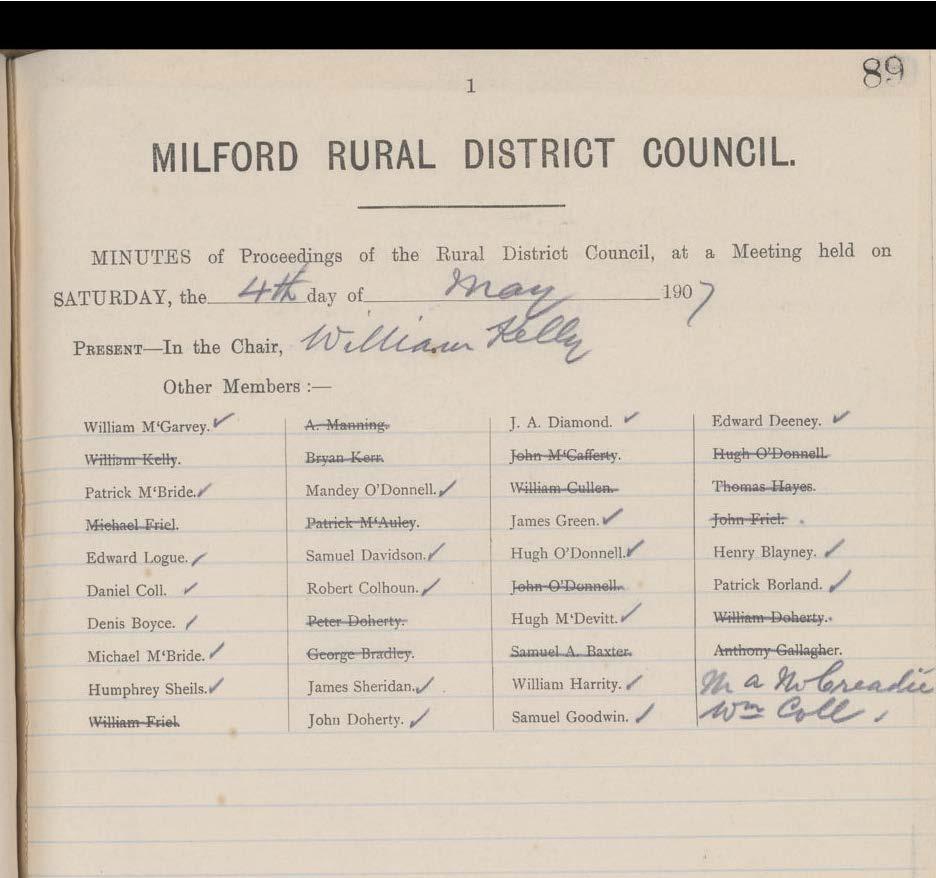 89
1
MILFORD RURAL DISTRICT COUNCIL.
MINUTES of Proceedings of the Rural District Council, at a Meeting held on
SATURDAY, the 4th day of May 1907
PRESENT—In the Chair, William Kelly
Other Members :—
William M‘Garvey. ✓ A. Manning. J. A. Diamond. ✓ Edward Deeney. ✓
William Kelly. Bryan Kerr. John M‘Cafferty. Hugh O’Donnell.
Patrick M‘Bride. ✓ Mandey O’Donnell. ✓ William Cullen. Thomas Hayes.
Michael Friel. Patrick M‘Auley. James Green. ✓ John Friel.
Edward Logue. ✓ Samuel Davidson. ✓ Hugh O’Donnell. ✓ Henry Blayney. ✓
Daniel Coll. ✓ Robert Colhoun. ✓ John O’Donnell. Patrick Borland. ✓
Denis Boyce. ✓ Peter Doherty. Hugh M‘Devitt. ✓ William Doherty.
Michael M‘Bride. ✓ George Bradley. Samuel A. Baxter. Anthony Gallagher.
Humphrey Sheils. ✓ James Sheridan. ✓ William Harrity. ✓ M a McCreadie
William Friel. John Doherty. ✓ Samuel Goodwin. ✓ Wm Coll